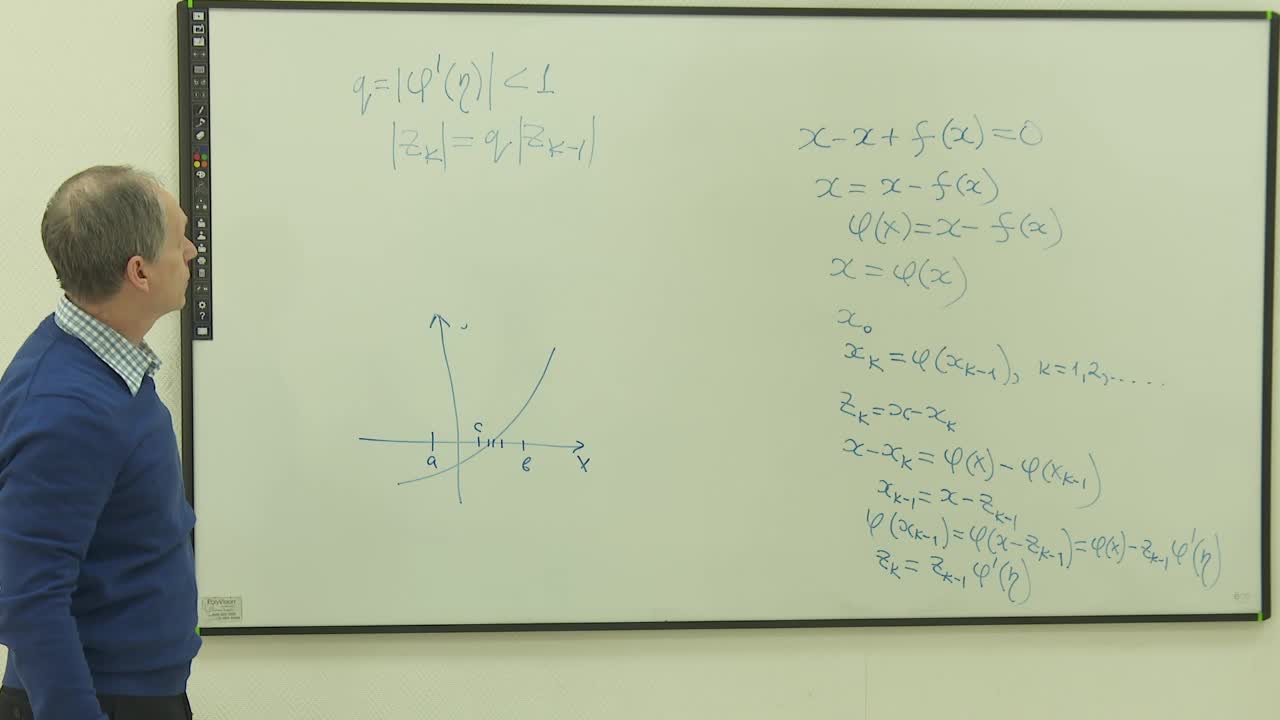 q=|φ'(η)|<1
|z_k|=q|z_{k-1}|
x-x+f(x)=0
x=x-f(x)
φ(x)=x-f(x)
x=φ(x)
x_0
x_k=φ(x_{k-1}), k=1,2,.....
z_k=x-x_k
x-x_k=φ(x)-φ(x_{k-1})
x_{k-1}=x-z_{k-1}
φ(x_{k-1})=φ(x-z_{k-1})=φ(x)-z_{k-1}φ'(η)
z_k=z_{k-1}φ'(η)
c
a
в
x
PolyVision